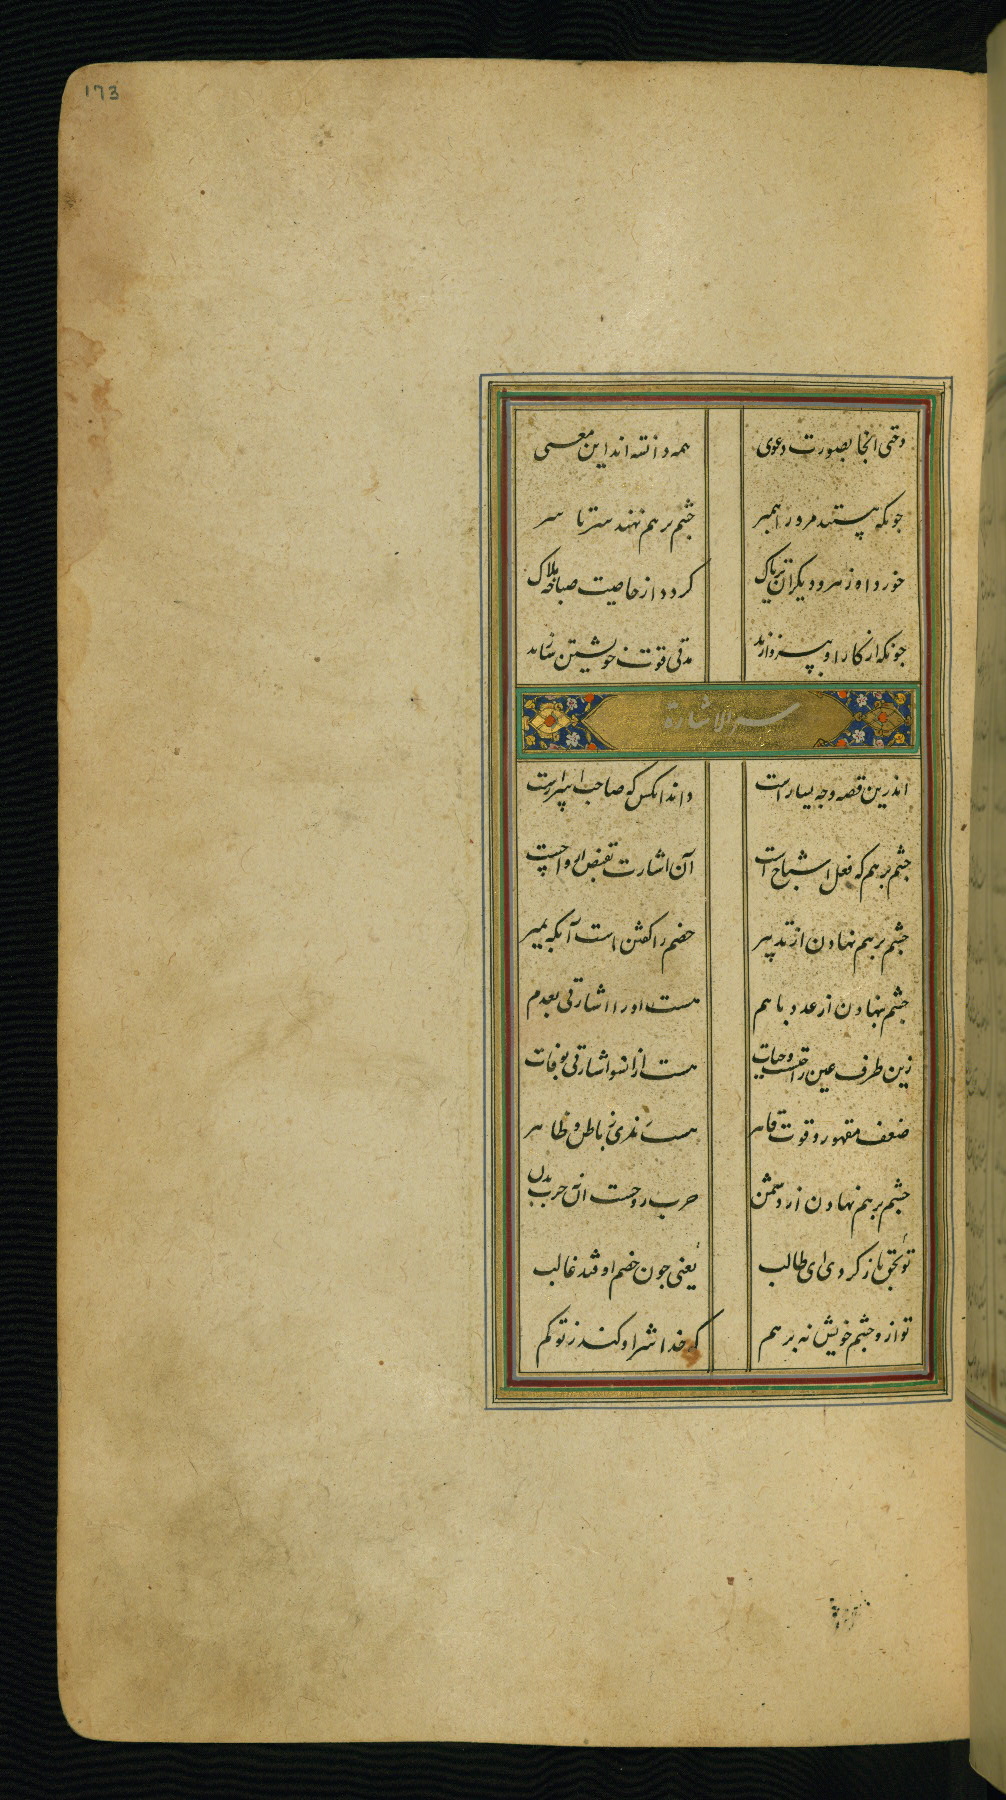 173
دختی انجا بصورت دعوی همه دانسته اند این معنی
جونکه بینند مرو را همبر جشم بر هم نهند سر تا سر
خورد او زهر و دیکران تریاک کردد از خاصیت صباحه هلاک
جونکه از کار او بپردازند قوت خویشتن
سر الاشارة
اندرین قصه وجه بسیار است داند انکس که صاحب اسرار است
جشم بر هم که فعل اشباح است آن اشارت بقبض ارواحست
جشم بر هم نهادن از تدبیر خصم را کفتن است آنکه بمیر
جشم بنهادن از عدد با هم هست او را اشارتی بعدم
زین طرف عین وحیات هست از انسو اشارتی بوفات
ضعف مقهور و قوت قاهر هست ز باطن و ظاهر
جشم بر هم نهادن از دشمن حرب روحست آن حرب بدن
تو بحق باز کردی ای طالب یعنی جون خصم اوفتد غالب
تو از و جشم خویش نه بر هم که خدا شر او کند ز تو کم